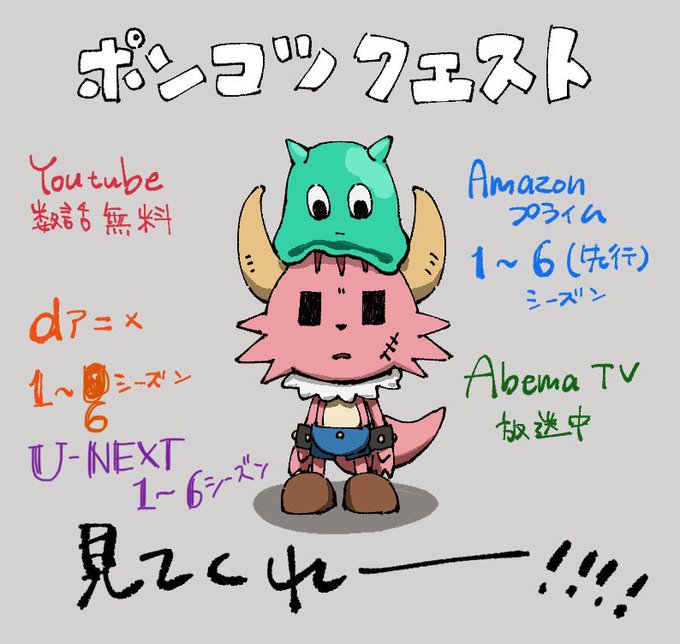 ポンコツクエスト
Youtube
数話無料
Amazon
プライム
1~6(先行)
シーズン
dアニメ
1~シーズン
6
Abema TV
放送中
U-NEXT
1~6シーズン
見てくれー!!!!